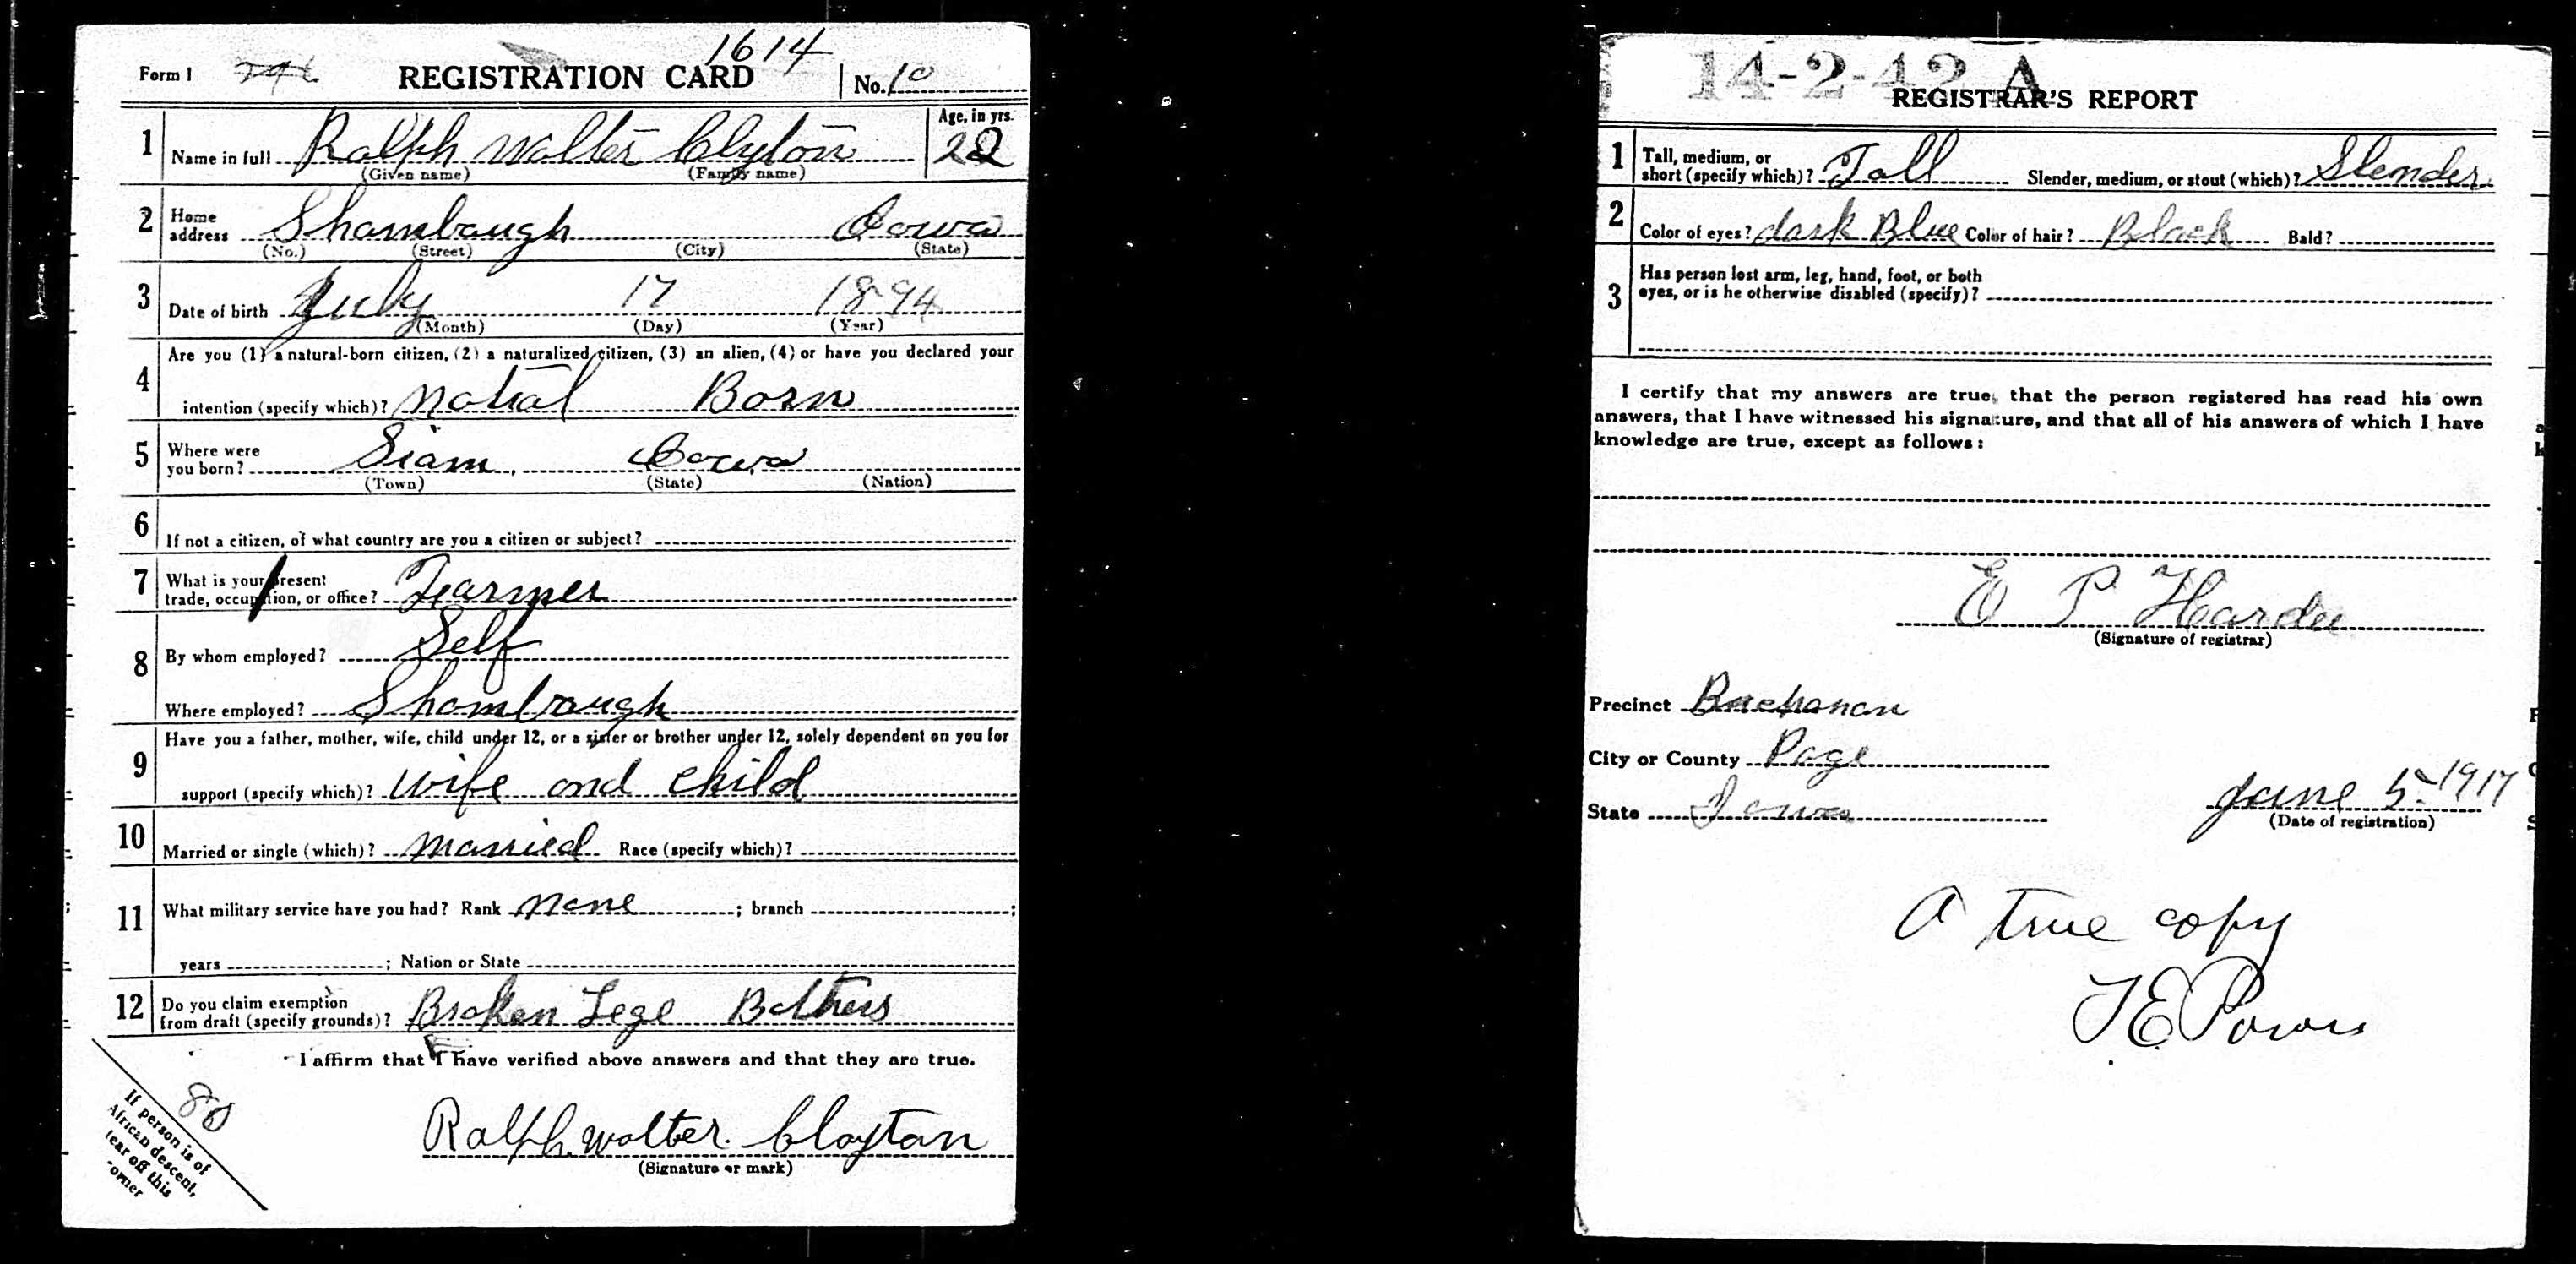 1614
Form 1 REGISTRATION CARD No. 10
1 Name in full Ralph Walter Clyton Age, in yrs. 22
(Given name) (Family name)
2 Home address Shambaugh Iowa
(No.) (Street) (City) (State)
3 Date of birth July 17 1894
(Month) (Day) (Year)
4 Are you (1) a natural-born citizen, (2) a naturalized citizen, (3) an alien, (4) or have you declared your
intention (specify which)? Natral Born
5 Where were you born? Siam, Iowa
(Town) (State) (Nation)
6 If not a citizen, of what country are you a citizen or subject?
7 What is your present
trade, occupation, or office? Farmer
8 By whom employed? Self
Where employed? Shambaugh
9 Have you a father, mother, wife, child under 12, or a sister or brother under 12, solely dependent on you for
support (specify which)? wife and child
10 Married or single (which)? married Race (specify which)?
11 What military service have you had? Rank none ; branch ;
years ; Nation or State
12 Do you claim exemption
from draft (specify grounds)? Broken Lege Bothers
I affirm that I have verified above answers and that they are true.
Ralph Walter Clayton
(Signature or mark)
If person is of
African descent,
tear off this
corner
14-2-42 A
REGISTRAR'S REPORT
1 Tall, medium, or
short (specify which)? Tall Slender, medium, or stout (which)? Slender
2 Color of eyes? dark Blue Color of hair? Black Bald?
3 Has person lost arm, leg, hand, foot, or both
eyes, or is he otherwise disabled (specify)?
I certify that my answers are true, that the person registered has read his own
answers, that I have witnessed his signature, and that all of his answers of which I have
knowledge are true, except as follows:
E P Hardee
(Signature of registrar)
Precinct Buchanan
City or County Page
State Iowa June 5-1917
(Date of registration)
A true copy